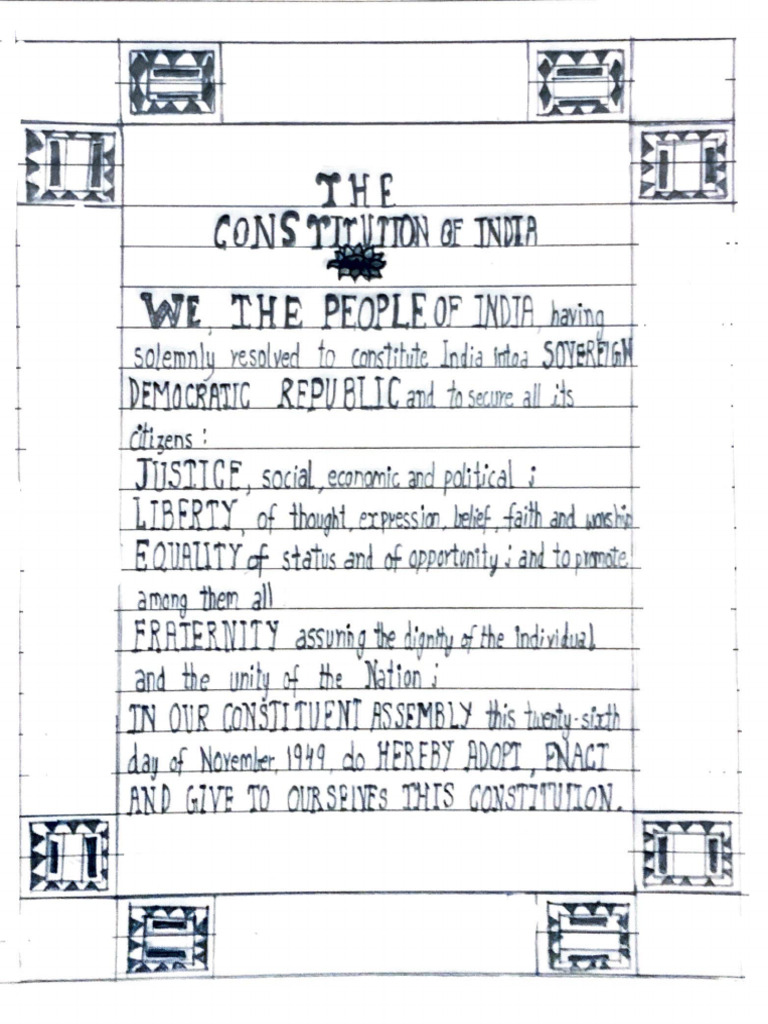 THE
CONSTITUTION OF INDIA
WE, THE PEOPLE OF INDIA, having
solemnly resolved to constitute India into a SOVEREIGN
DEMOCRATIC REPUBLIC and to secure all its
citizens :
JUSTICE, social, economic and political ;
LIBERTY, of thought, expression, belief, faith and worship
EQUALITY of status and of opportunity ; and to promote
among them all
FRATERNITY assuring the dignity of the individual
and the unity of the Nation ;
IN OUR CONSTITUENT ASSEMBLY this twenty-sixth
day of November, 1949, do HEREBY ADOPT, ENACT
AND GIVE TO OURSELVES THIS CONSTITUTION.